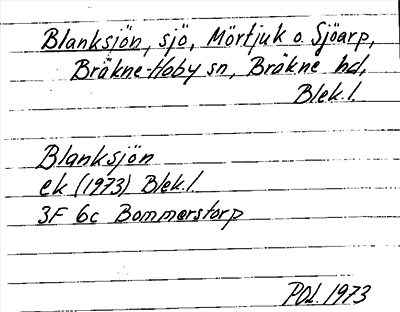 Blanksjön, sjö, Mörtjuk o. Sjöarp,
Bräkne-Hoby sn, Bräkne hd,
Blek. l.
Blanksjön
ek (1973) Blek. l
3F 6c Bommerstorp
POL. 1973